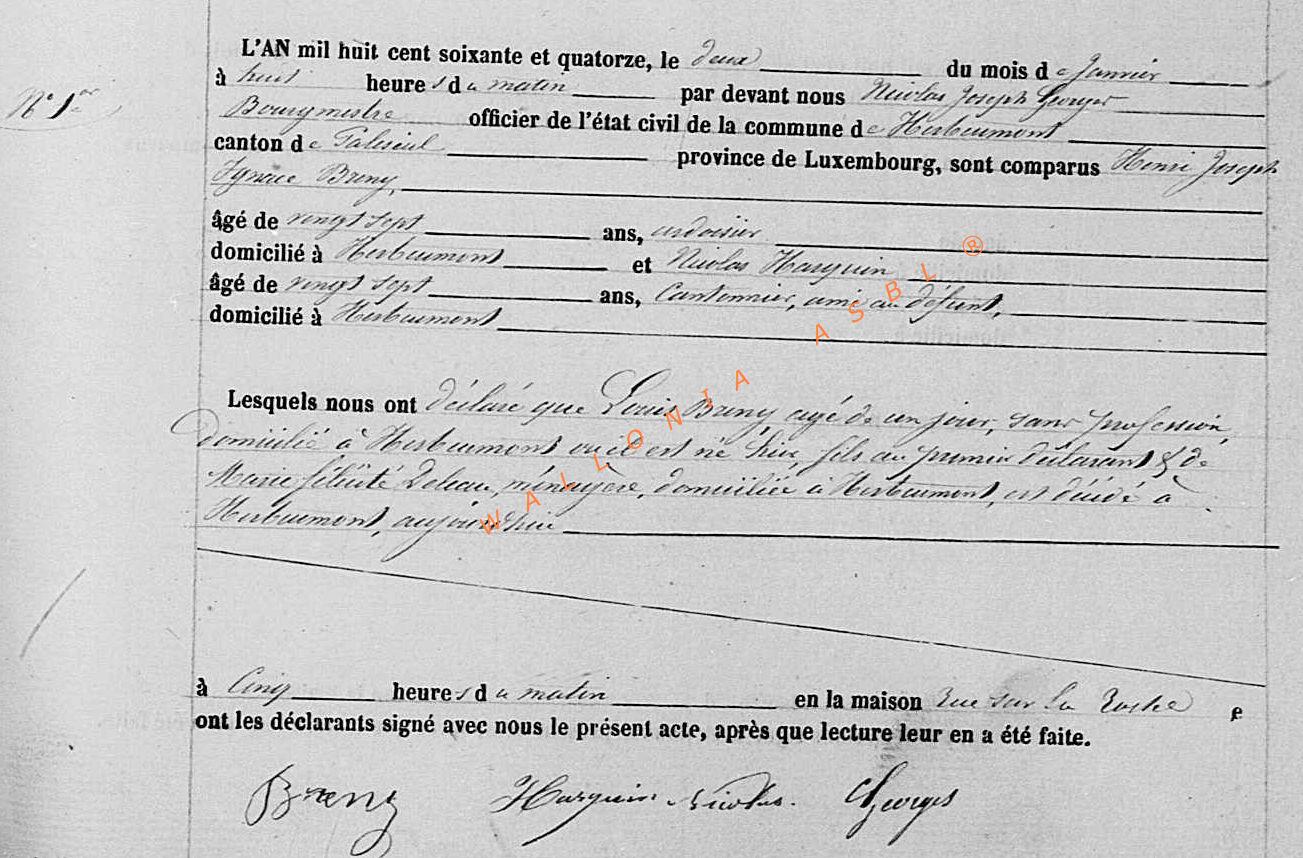 N° 1er
L'AN mil huit cent soixante et quatorze, le deux du mois de Janvier
à huit heures du matin par devant nous Nicolas Joseph Georges
Bourgmestre officier de l'état civil de la commune de Herbeumont
canton de Paliseul province de Luxembourg, sont comparus Henri Joseph
Ignace Breny,
âgé de vingt sept ans, ardoisier
domicilié à Herbeumont et Nicolas Harguin
âgé de vingt sept ans, Cantonnier, ami au défunt,
domicilié à Herbeumont
Lesquels nous ont déclaré que Louis Breny, agé de un jour, sans profession,
domicilié à Herbeumont ou il est né hier, fils au premier déclarant & de
Marie félicité Deleau, ménagère, domiciliée à Herbeumont, est décédé à
Herbeumont, aujourd'hui
à Cinq heures du matin en la maison Rue sur la Roche e
ont les déclarants signé avec nous le présent acte, après que lecture leur en a été faite.
Breny Harguin Nicolas. Georges
WALLONIA ASBL ®